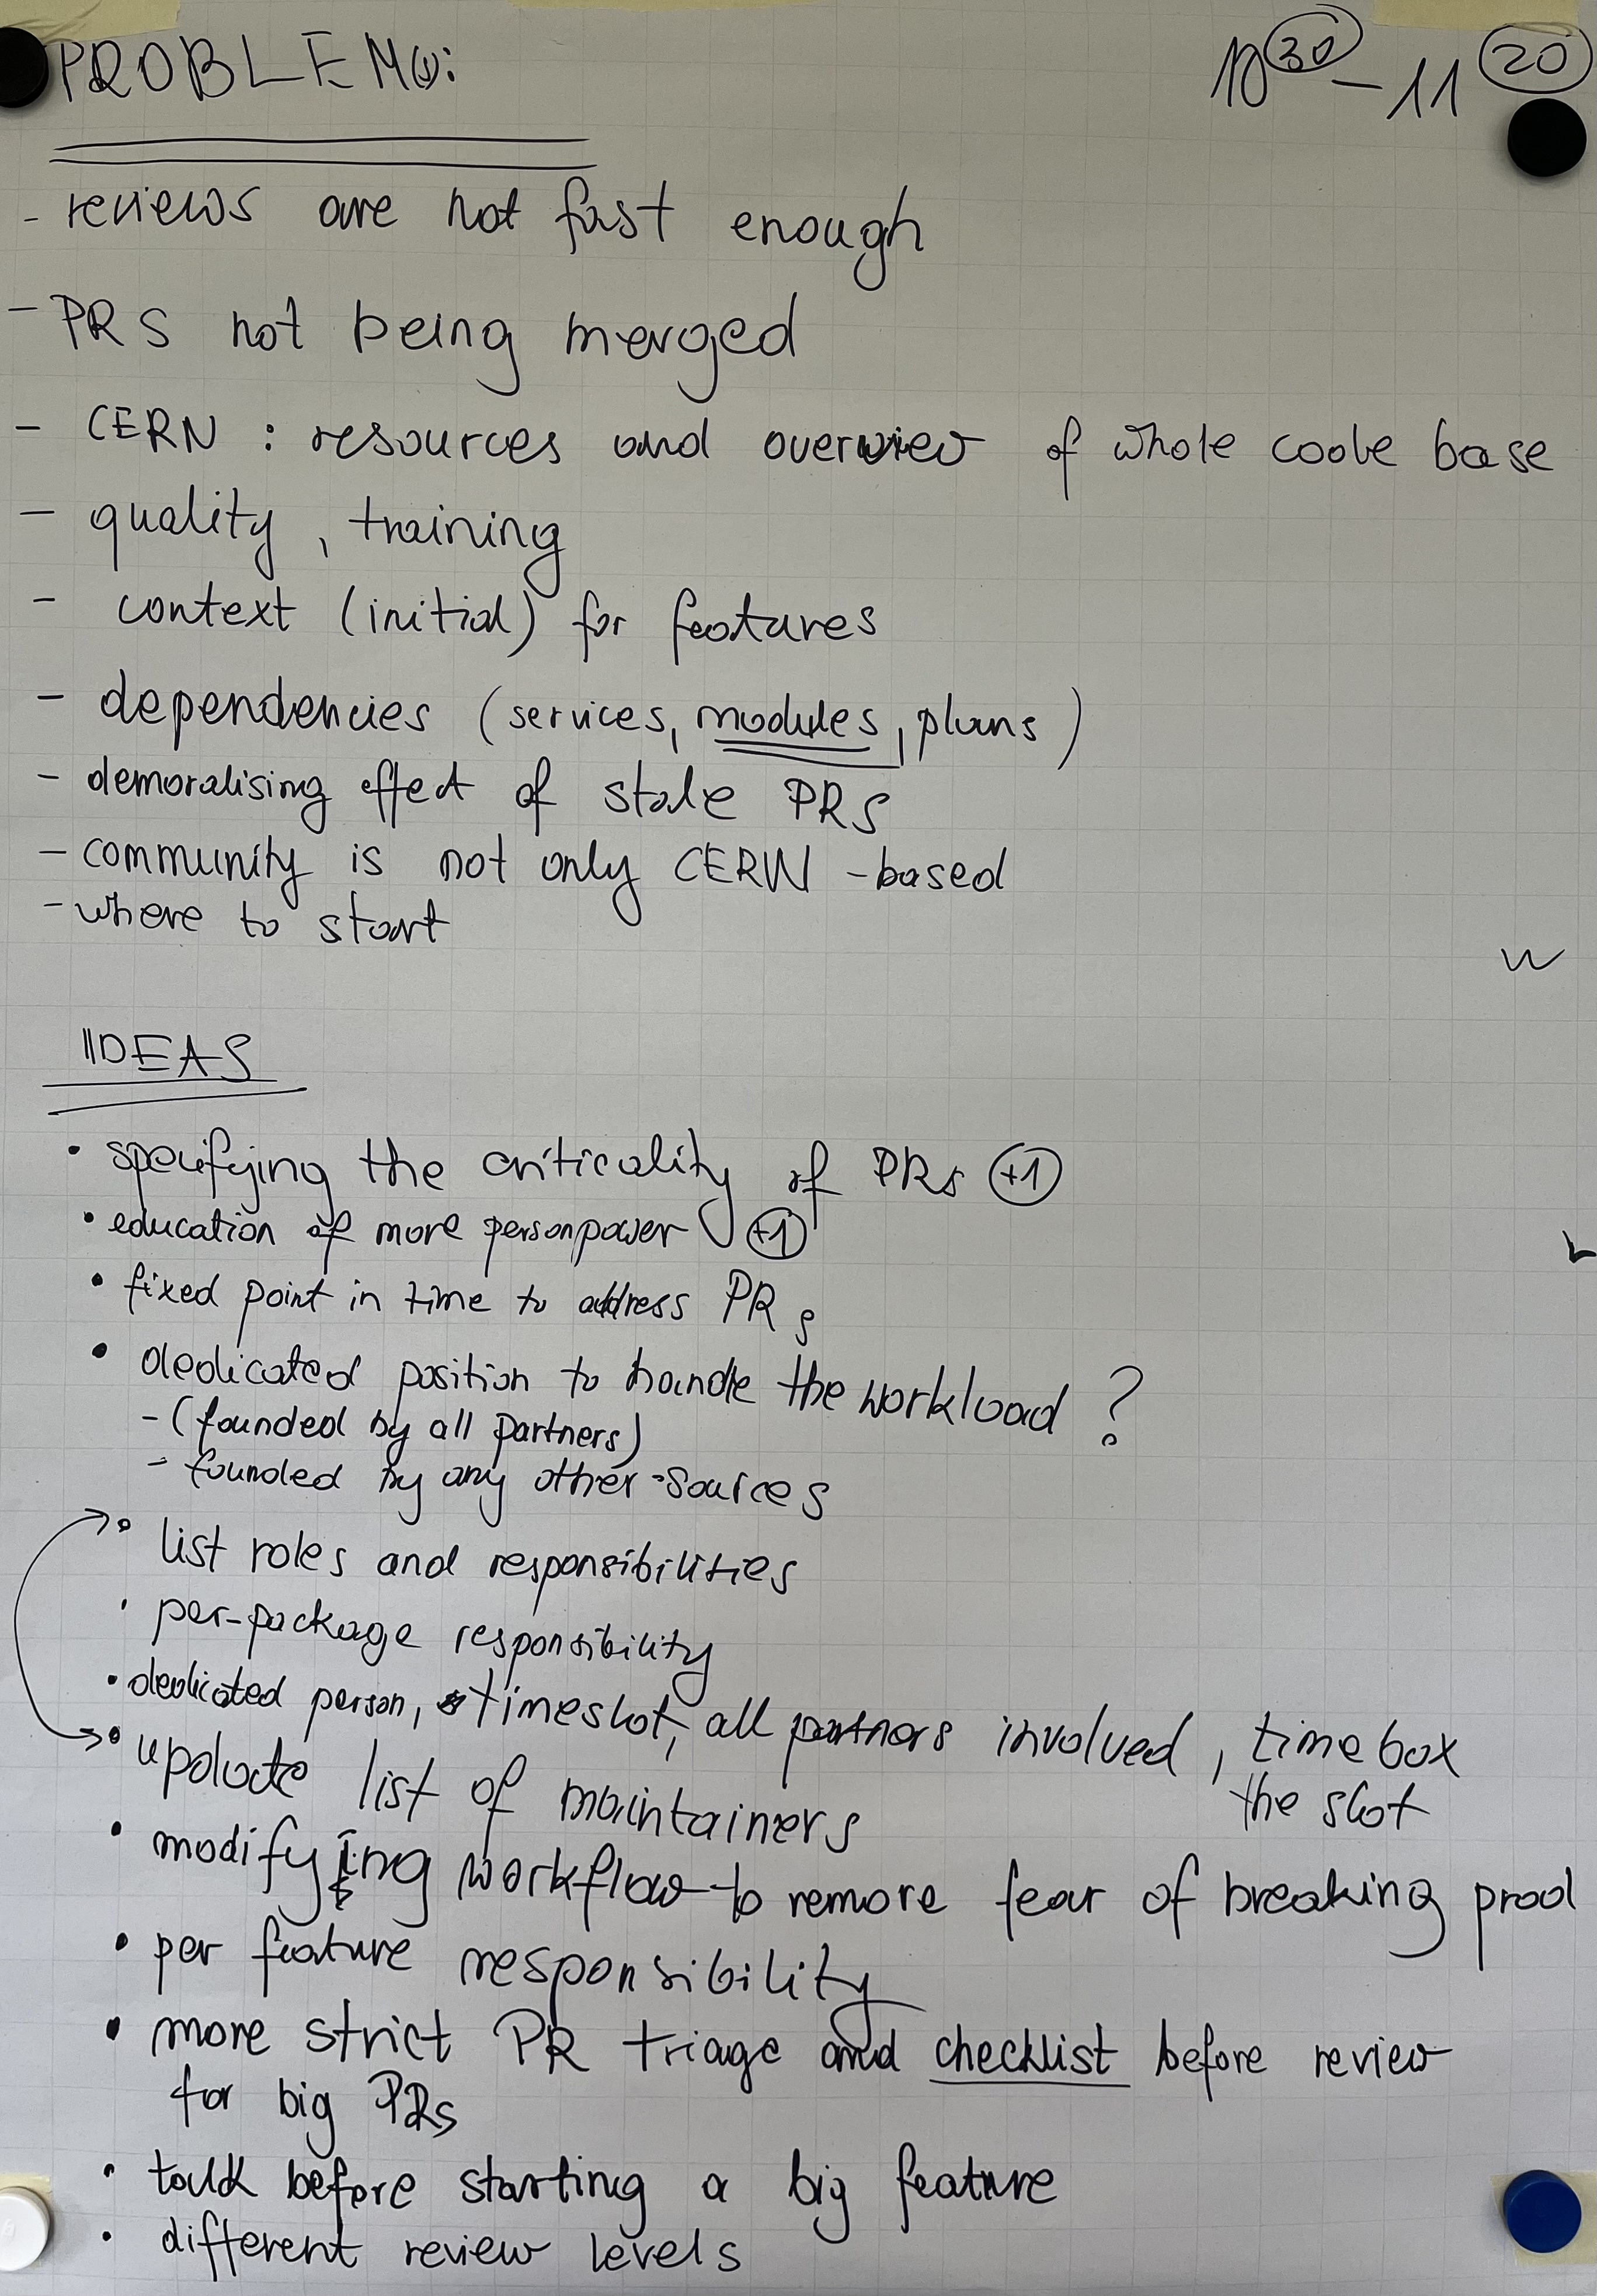 PROBLEM(s): 10 30 - 11 20
- reviews are not fast enough
- PRs not being merged
- CERN : resources and overview of whole code base
- quality, training
- context (initial) for features
- dependencies (services, modules, plans)
- demoralising effect of stale PRs
- community is not only CERN-based
- where to start
IDEAS
• specifying the criticality of PRs +1
• education of more personpower +1
• fixed point in time to address PRs
• dedicated position to handle the workload ?
- (founded by all partners)
- founded by any other sources
• list roles and responsibilities
• per-package responsibility
• dedicated person, timeslot, all partners involved, timebox
the slot
• update list of maintainers
• modifying workflow to remove fear of breaking prod
• per feature responsibility
• more strict PR triage and checklist before review
for big PRs
• talk before starting a big feature
• different review levels